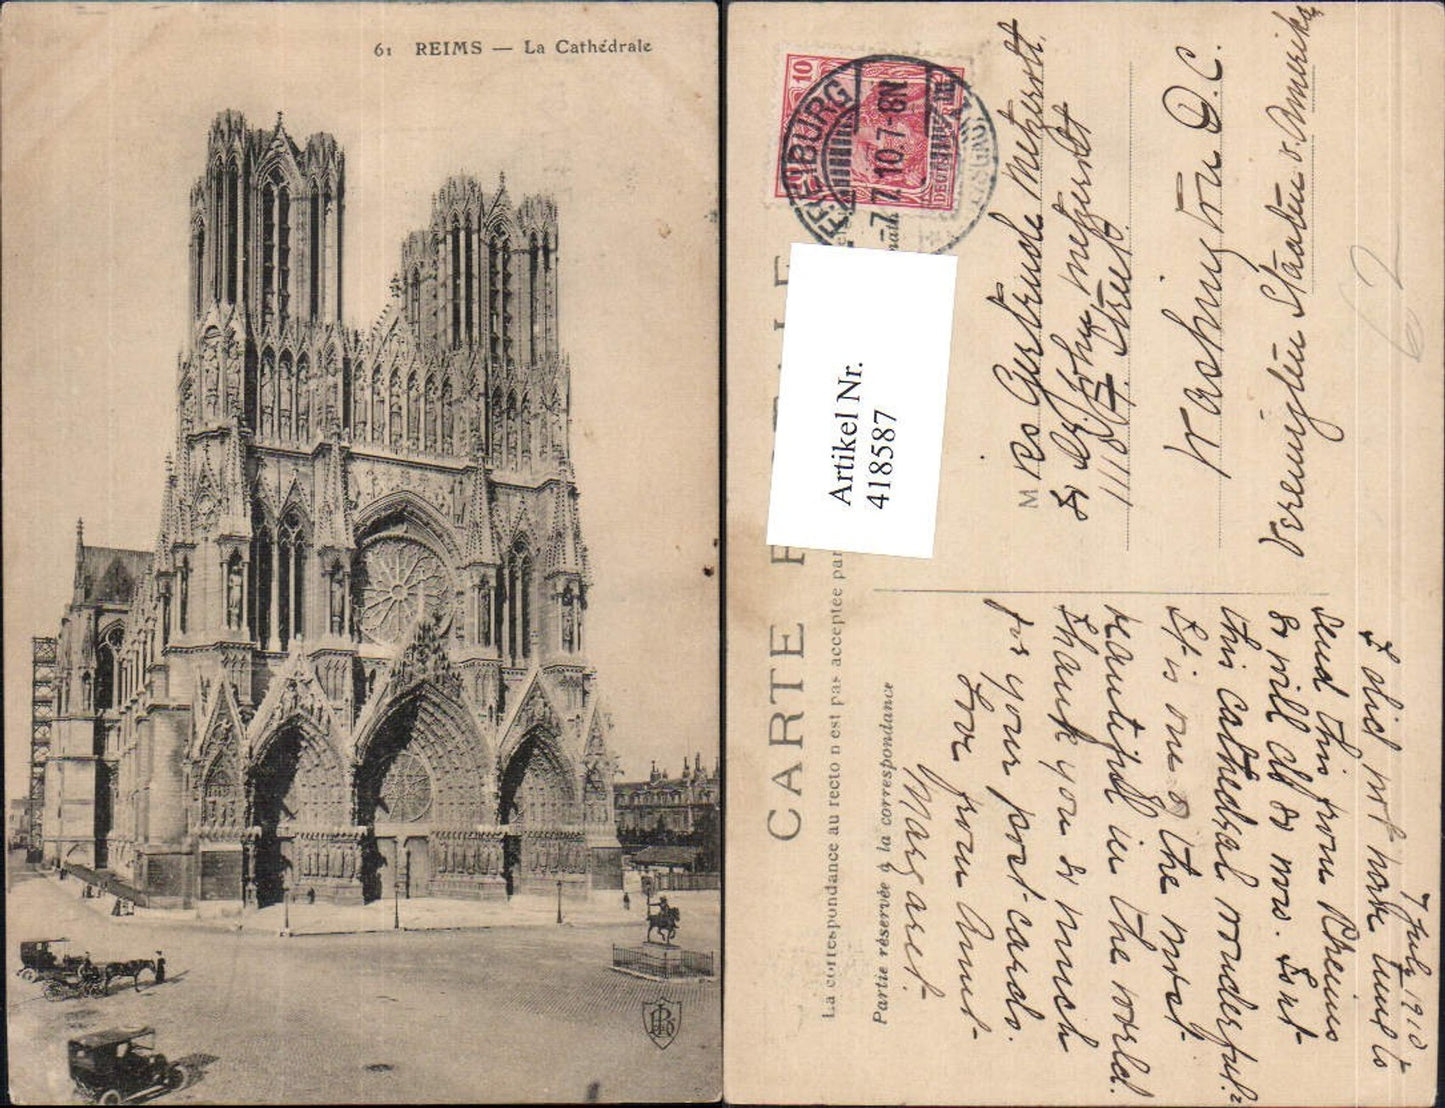 61 REIMS — La Cathédrale
CARTE P
La correspondance au recto n'est pas acceptée par
Partie réservée à la correspondance
10
DEUTSCHES
FREIBURG
-7.7.10.7-8N
Artikel Nr.
418587
M rs Gertrude Metzerott.
% Mr. John Metzerott
1110 F. Street.
Washington D.C.
Vereinigten Staaten v. Amerika
62
7 July 1910
I did not have time to
send this from Rheims
so will do so now. Isn't
this cathedral wonderful?
It is one of the most
beautiful in the world.
Thank you so much
for your post cards.
Love from Aunt
Margaret.